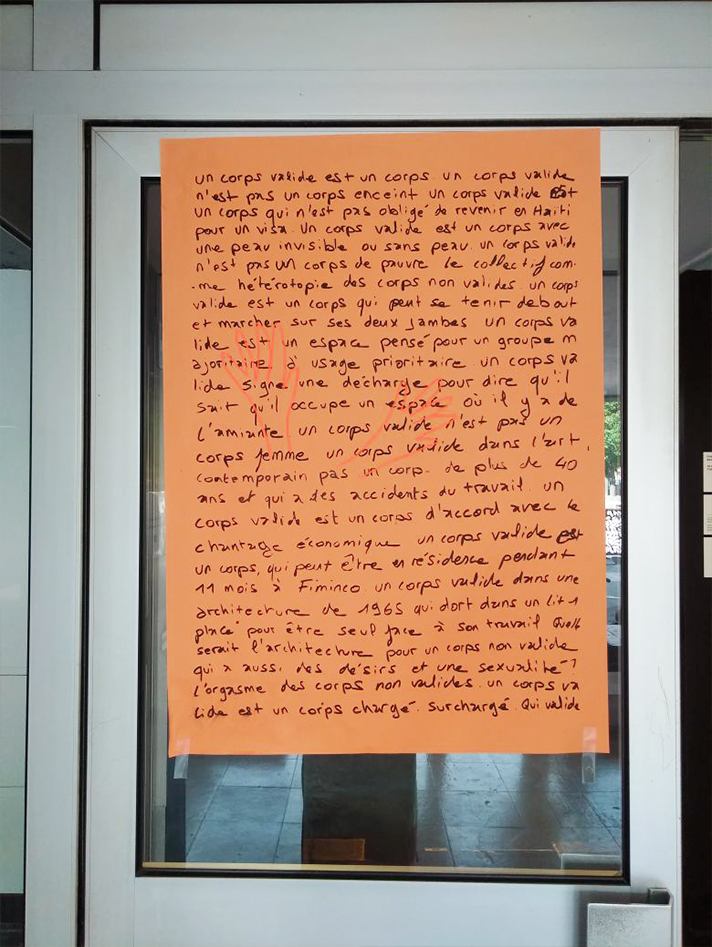 un corps valide est un corps. un corps valide
n'est pas un corps enceint un corps valide est
un corps qui n'est pas obligé de revenir en Haïti
pour un visa. Un corps valide est un corps avec
une peau invisible ou sans peau. un corps valide
n'est pas un corps de pauvre le collectif com-
-me hétérotopie des corps non valides. un corps
valide est un corps qui peut se tenir debout
et marcher sur ses deux jambes un corps va
lide est un espace pensé pour un groupe m
ajoritaire à usage prioritaire. un corps va
lide signe une décharge pour dire qu'il
sait qu'il occupe un espace où il y a de
l'amiante un corps valide n'est pas un
corps femme un corps valide dans l'art
contemporain pas un corp. de plus de 40
ans et qui a des accidents du travail. un
corps valide est un corps d'accord avec le
chantage économique un corps valide est
un corps, qui peut être en résidence pendant
11 mois à Fiminco. un corps valide dans une
architecture de 1965 qui dort dans un lit 1
place pour être seul face à son travail Quelle
serait l'architecture pour un corps non valide
qui a aussi des désirs et une sexualité?
L'orgasme des corps non valides. un corps va
lide est un corps chargé. surchargé. Qui valide